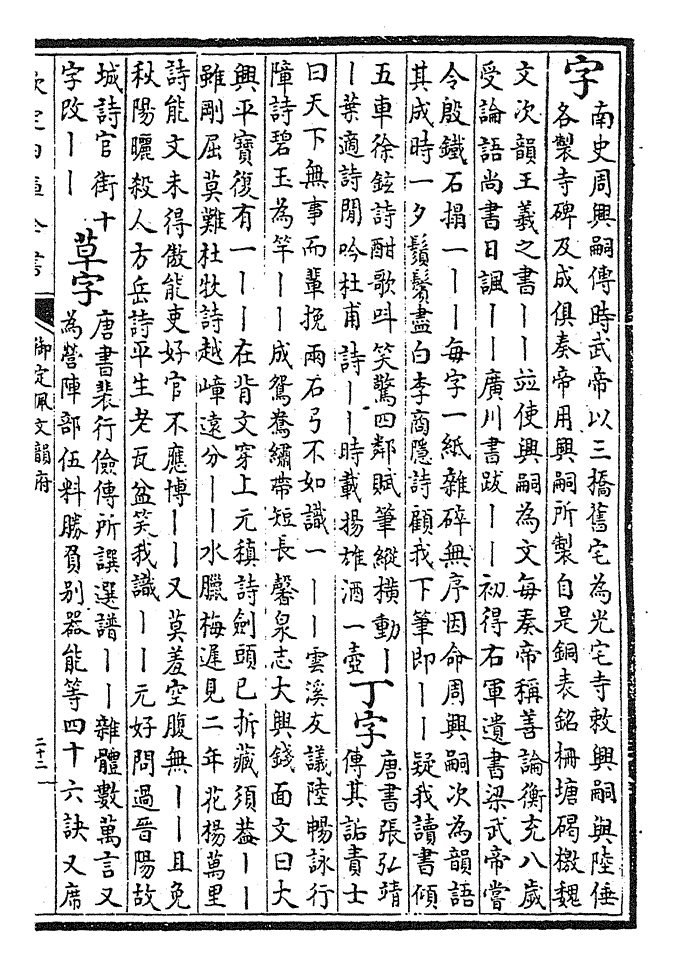 字
南史周興嗣傳時武帝以三橋舊宅為光宅寺敕興嗣與陸倕
各製寺碑及成俱奏帝用興嗣所製自是銅表銘柵塘碣檄魏
文次韻王羲之書丨丨竝使興嗣為文每奏帝稱善論衡充八歲
受論語尚書日諷丨丨廣川書跋丨丨初得右軍遺書梁武帝嘗
令殷鐵石搨一丨丨每字一紙雜碎無序因命周興嗣次為韻語
其成時一夕鬚鬢盡白李商隱詩顧我下筆即丨丨疑我讀書傾
五車徐鉉詩酣歌叫笑驚四鄰賦筆縱橫動丨
丨葉適詩閒吟杜甫詩丨丨時載揚雄酒一壺
丁字
唐書張弘靖
傳其詬責士
曰天下無事而輩挽兩石弓不如識一丨丨雲溪友議陸暢詠行
障詩碧玉為竿丨丨成鴛鴦繡帶短長馨泉志大興錢面文曰大
興平寶復有一丨丨在背文穿上元稹詩劍頭已折藏須葢丨丨
雖剛屈莫難杜牧詩越嶂遠分丨丨水臘梅遲見二年花楊萬里
詩能文未得傲能吏好官不應博丨丨又莫羞空腹無丨丨且免
秋陽曬殺人方岳詩平生老瓦盆笑我識丨丨元好問過晉陽故
城詩官街十
字改丨丨
草字
唐書裴行儉傳所譔選譜丨丨雜體數萬言又
為營陣部伍料勝負别器能等四十六訣又席
欽定四庫全書
御定佩文韻府
二十二